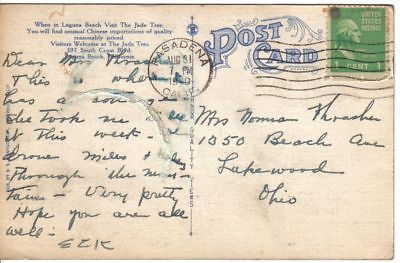 When in Laguna Beach Visit The Jade Tree.
You will find unusual Chinese importations of quality
reasonably priced
Visitors Welcome at The Jade Tree.
597 South Coast Blvd.
Laguna Beach, California
POST CARD
PASADENA
AUG 31
PM
CALIF.
UNITED STATES POSTAGE
1 CENT 1
Dear Mrs
this is where
has a
she took me
at this week -
drove miles &
Through the moun-
tains - Very pretty
Hope you are all
well - EEK
Mrs Norman Thracher
1350 Beach Ave
Lakewood
Ohio